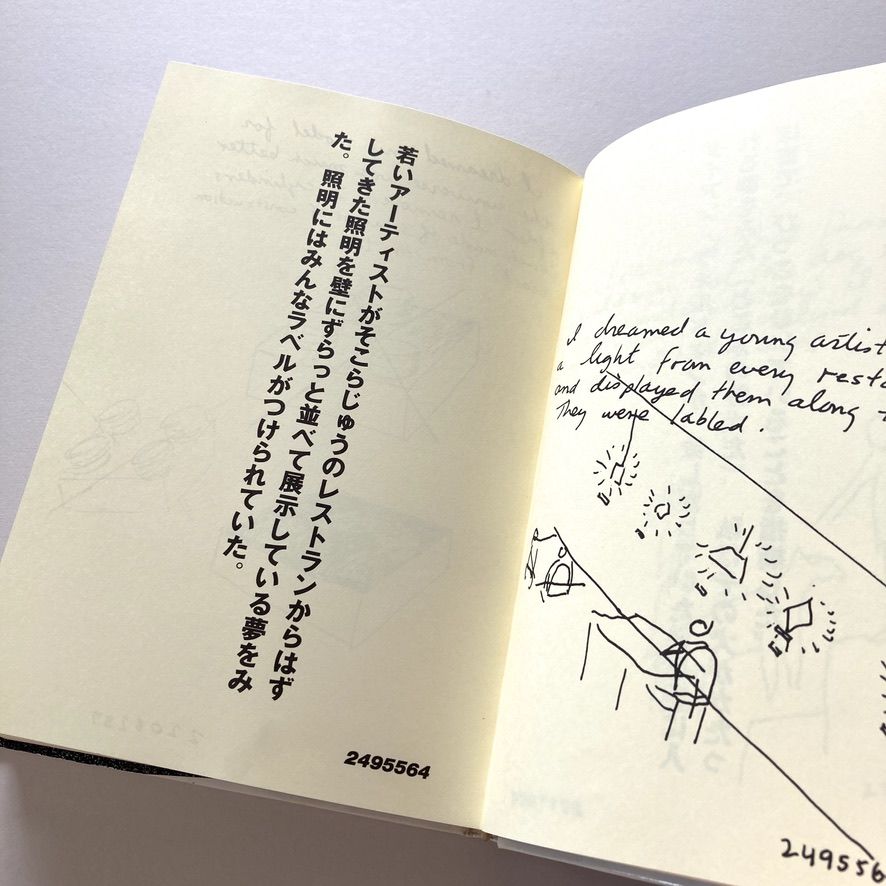 若いアーティストがそこらじゅうのレストランからはず
してきた照明を壁にずらっと並べて展示している夢をみ
た。照明にはみんなラベルがつけられていた。
2495564
I dreamed a young artist
a light from every resta
and displayed them along t
They were labled.
249556